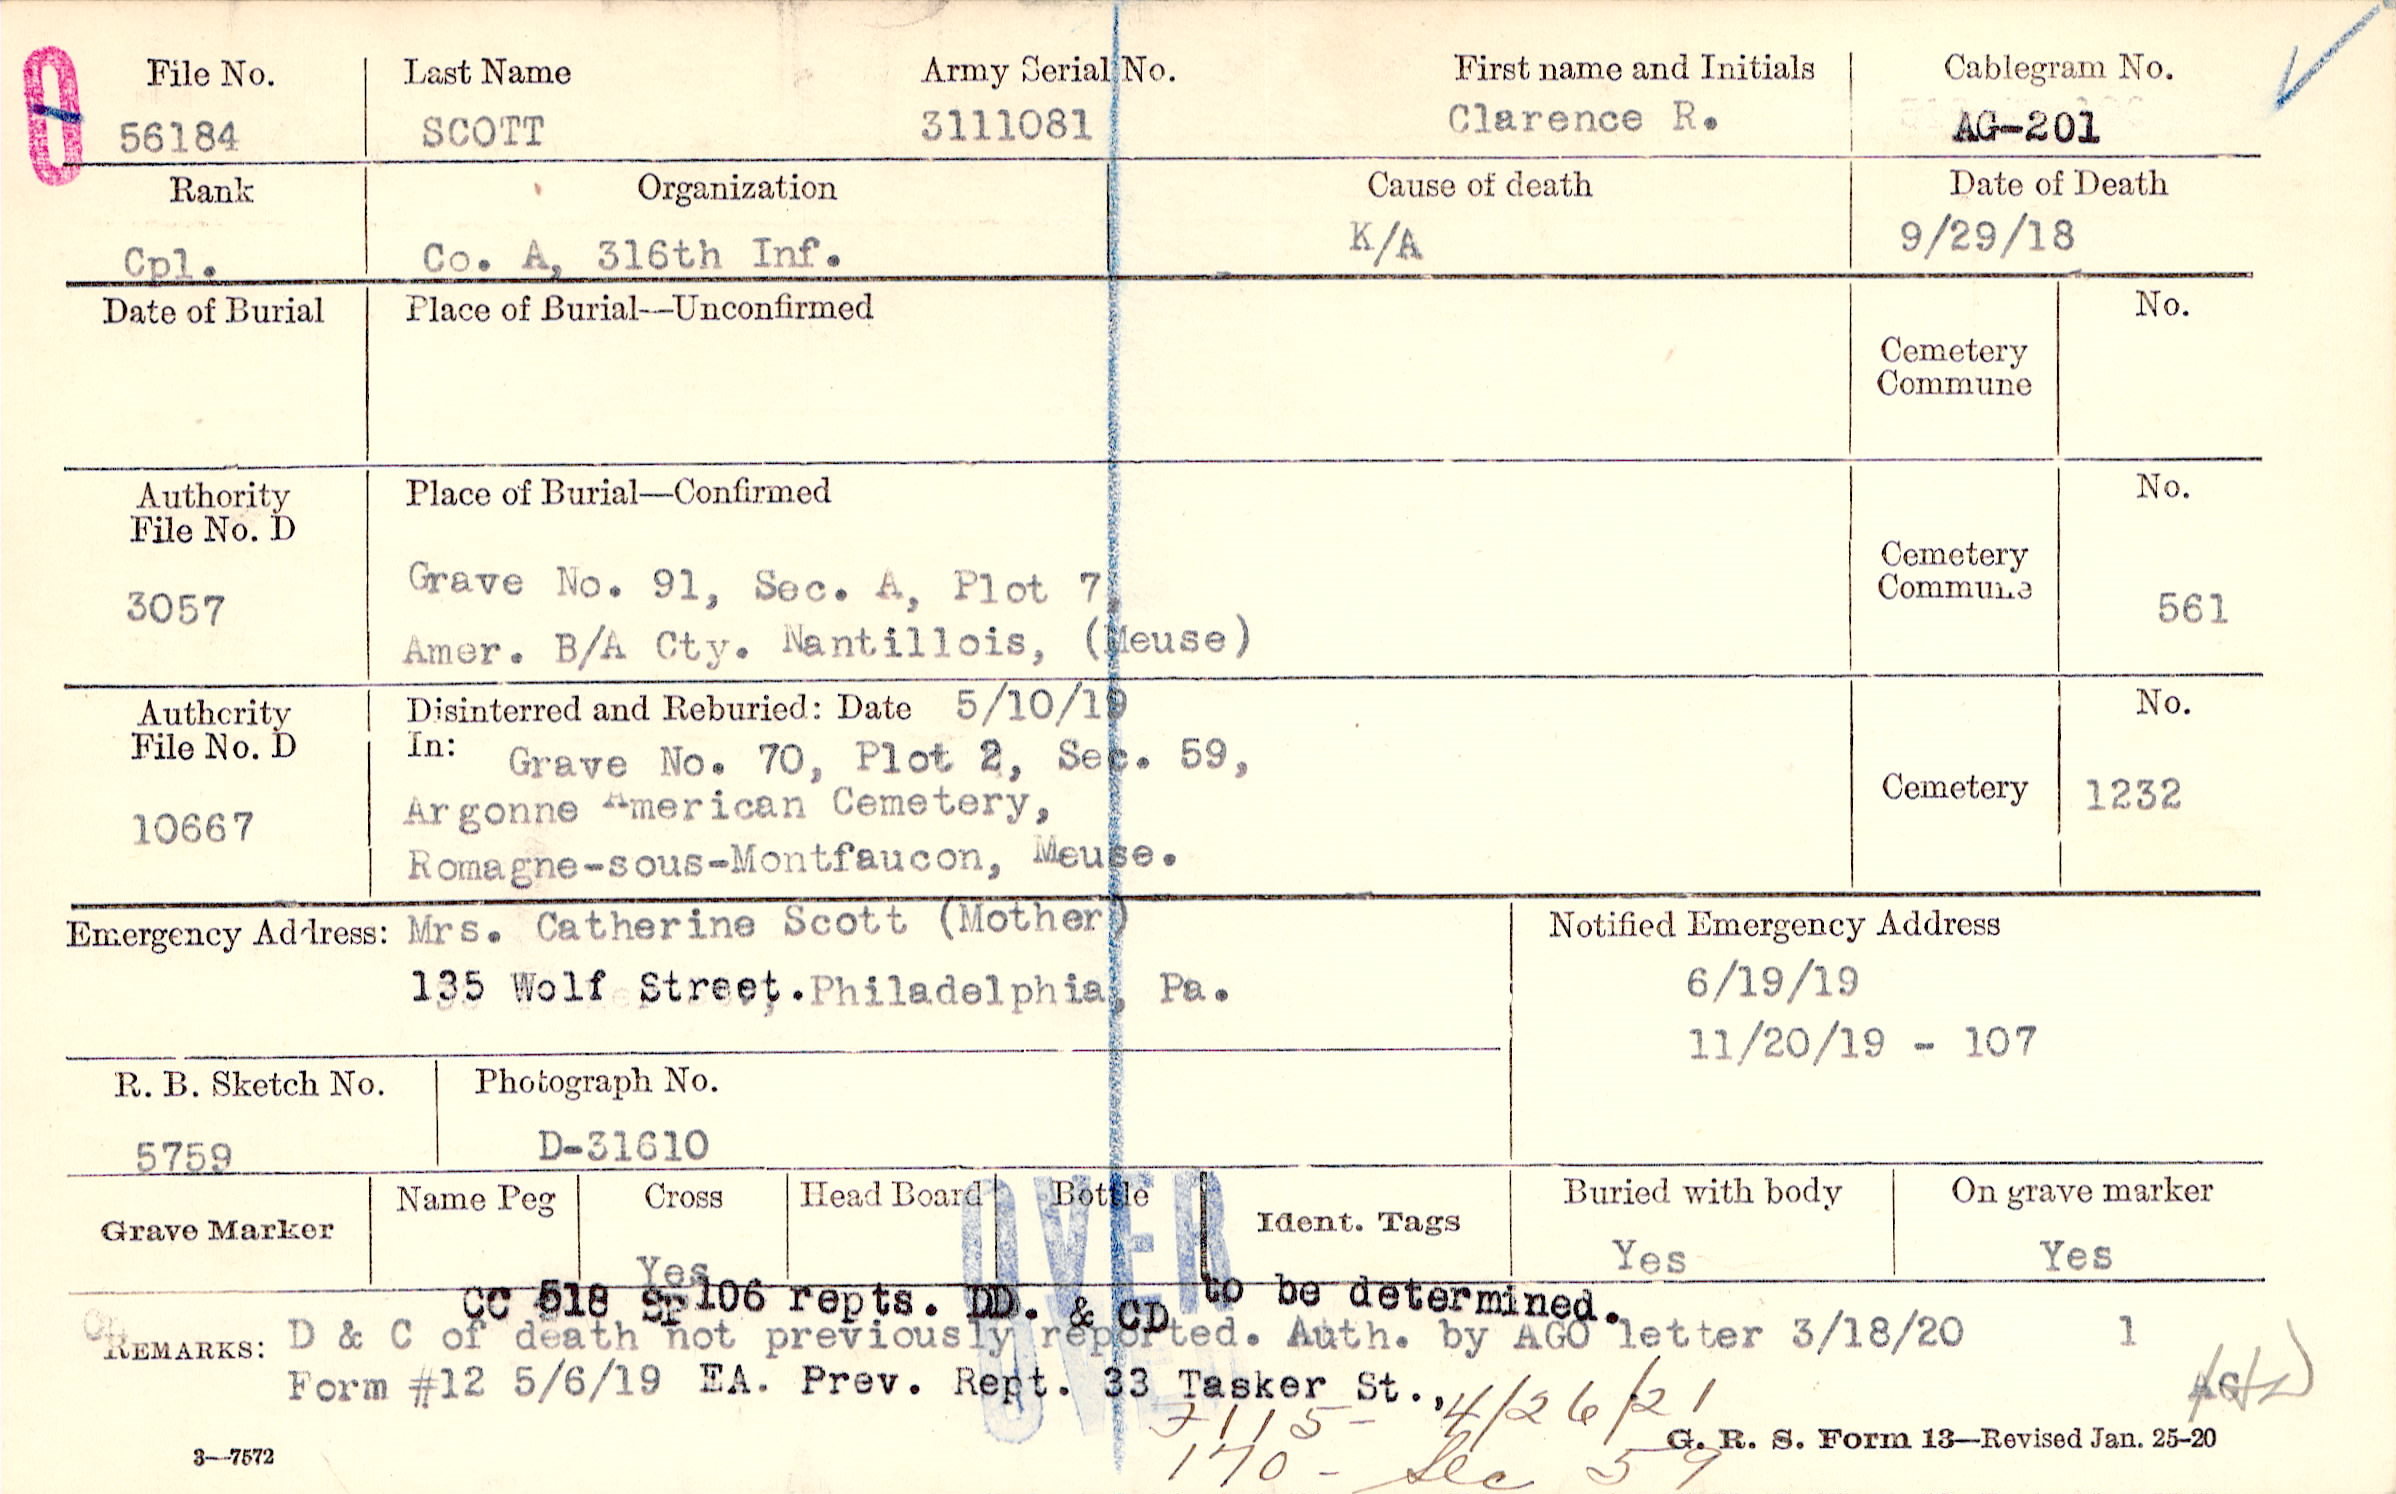 File No. Last Name Army Serial No. First name and Initials Cablegram No.
56184 SCOTT 3111081 Clarence R. AG-201
Rank Organization Cause of death Date of Death
Cpl. Co. A, 316th Inf. K/A 9/29/18
Date of Burial Place of Burial—Unconfirmed No.
Cemetery
Commune
Authority Place of Burial—Confirmed No.
File No. D
Grave No. 91, Sec. A, Plot 7, Cemetery
3057 Commune 561
Amer. B/A Cty. Nantillois, (Meuse)
Authority Disinterred and Reburied: Date 5/10/19 No.
File No. D In: Grave No. 70, Plot 2, Sec. 59,
Argonne American Cemetery, Cemetery 1232
10667
Romagne-sous-Montfaucon, Meuse.
Emergency Address: Mrs. Catherine Scott (Mother) Notified Emergency Address
135 Wolf Street. Philadelphia, Pa. 6/19/19
11/20/19 - 107
R. B. Sketch No. Photograph No.
5759 D-31610
Grave Marker Name Peg Cross Head Board Bottle Ident. Tags Buried with body On grave marker
Yes Yes Yes
OVER
CC 518 SP 106 repts. DD. & CD to be determined.
REMARKS: D & C of death not previously reported. Auth. by AGO letter 3/18/20 1
Form #12 5/6/19 EA. Prev. Rept. 33 Tasker St.,
4/26/21
G. R. S. Form 13—Revised Jan. 25-20
3—7572
170 - Sec 59